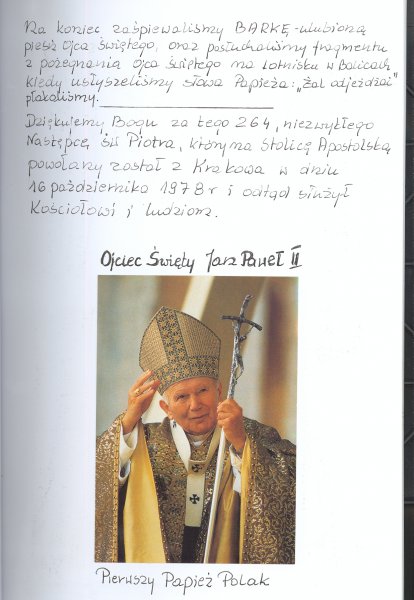 Na koniec zaśpiewaliśmy BARKĘ-ulubioną
pieśń Ojca Świętego, oraz posłuchaliśmy fragmentu
z pożegnania Ojca Świętego na lotnisku w Balicach,
kiedy usłyszeliśmy słowa Papieża: „Żal odjeżdżać"
płakaliśmy.
Dziękujemy Bogu za tego 264, niezwykłego
Następcę św. Piotra, który na Stolicę Apostolską
powołany został z Krakowa w dniu
16 października 1978 r i odtąd służył
Kościołowi i ludziom.
Ojciec Święty Jan Paweł II
Pierwszy Papież Polak